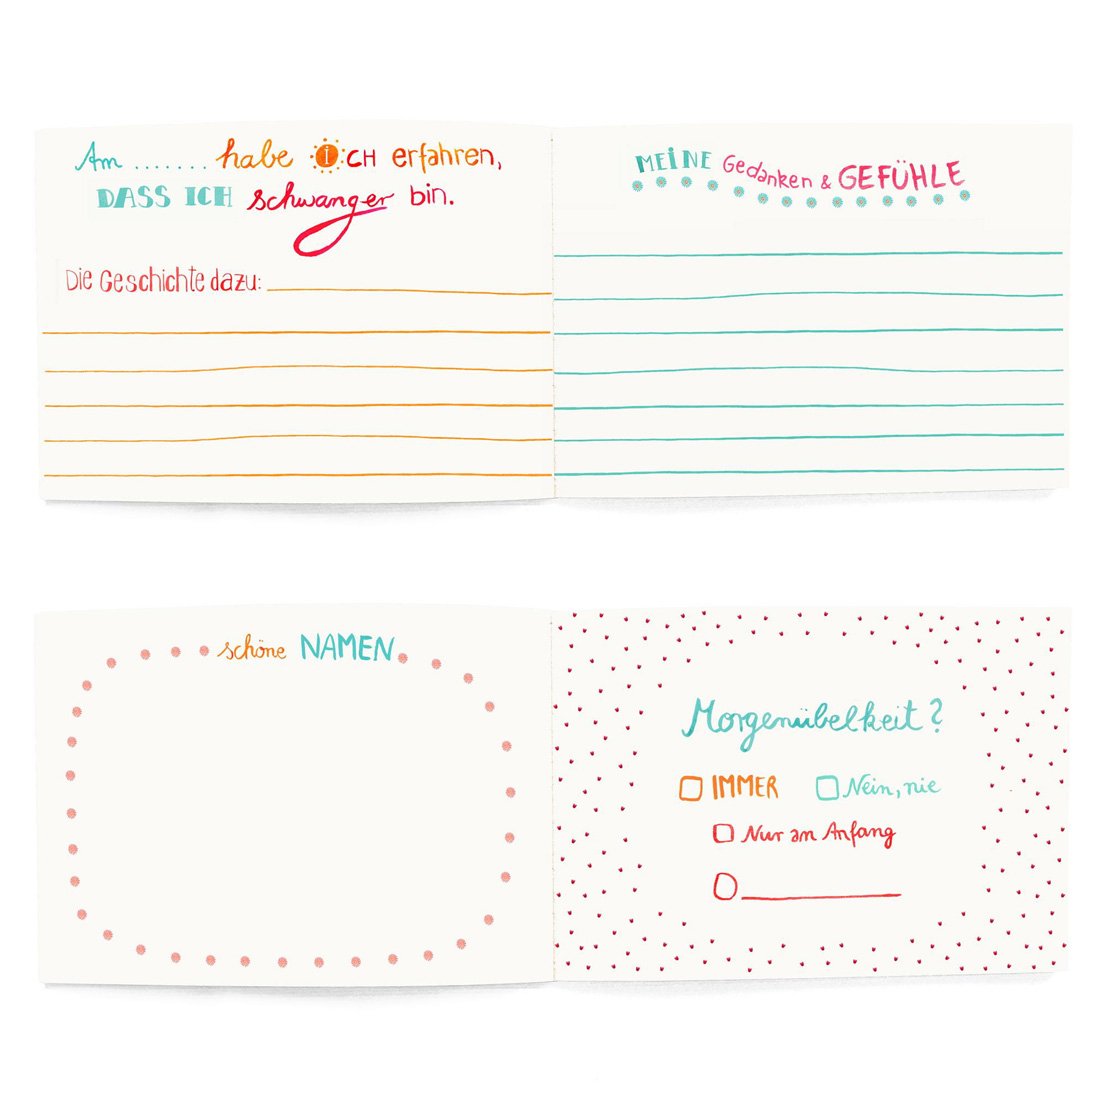 Am ....... habe ICH erfahren,
DASS ICH schwanger bin.
Die Geschichte dazu:
MEiNE Gedanken & GEFÜHLE
schöne NAMEN
Morgenübelkeit?
IMMER Nein, nie
Nur am Anfang